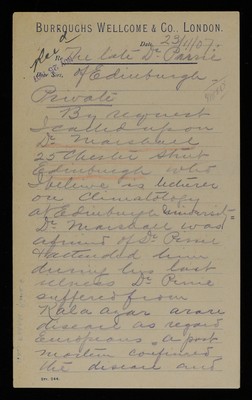 BURROUGHS WELLCOME & CO. LONDON.
Date, 23/11/07.
Re The late Dr. Pirrie
of Edinburgh
Private
By request
I called upon
Dr. Marshall
25 Chester Street
Edinburgh who
I believe is lecturer
on Climatology
at Edinburgh University
Dr. Marshall was
a friend of Dr. Pirrie
& attended him
during his last
illness Dr. Pirrie
suffered from
Kala azar a rare
disease as regard
Europeans a post
mortem confirmed
the disease and